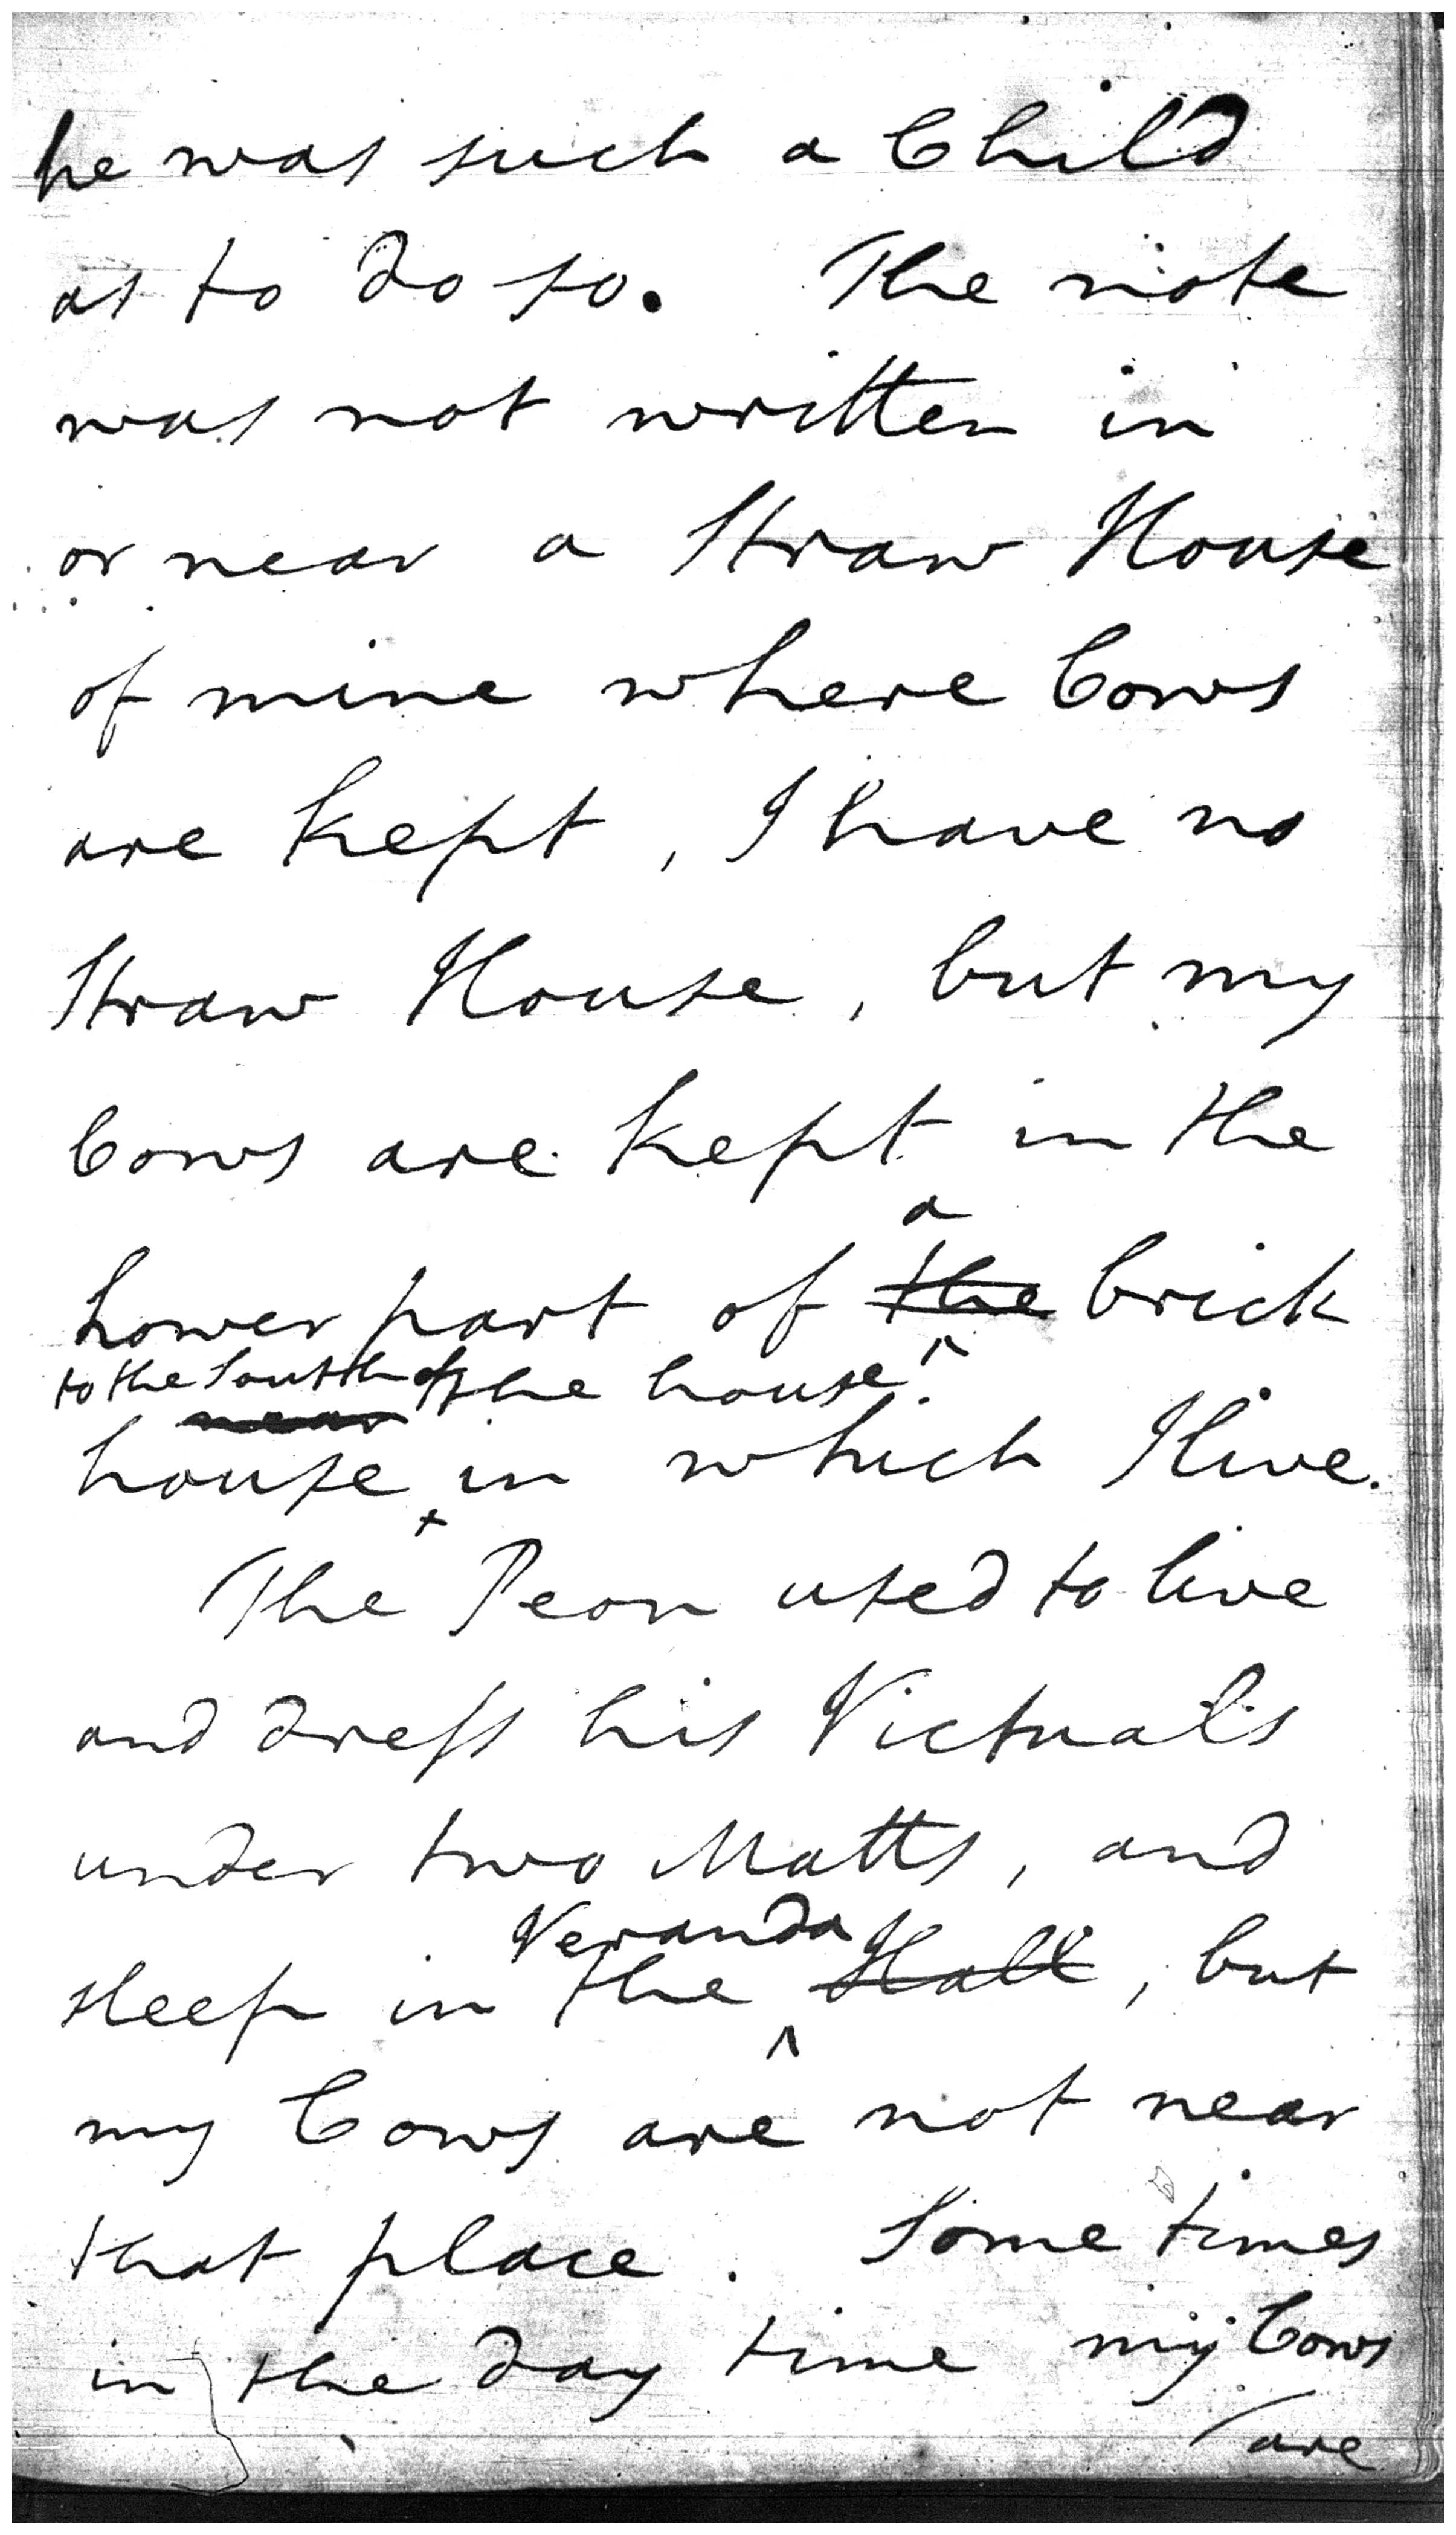 he was such a Child
as to do so. The note
was not written in
or near a Straw House
of mine where Cows
are kept, I have no
Straw House, but my
Cows are kept in the
a
Lower part of the brick
to the South of the house
near
house in which I live.
The Peon used to live
and dress his Victuals
under two Matts, and
Veranda
sleep in the Hall, but
my Cows are not near
that place. Some times
in the day time my Cows
are